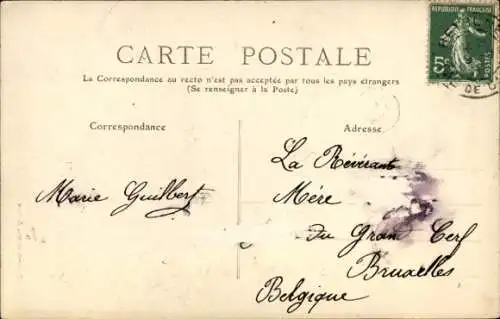 CARTE POSTALE
La Correspondance au recto n'est pas acceptée par tous les pays étrangers
(Se renseigner à la Poste)
Correspondance
Adresse
RÉPUBLIQUE FRANÇAISE
5c
POSTES
DE
La Révérante
Mére
Du Gran Cerf
Bruxelles
Belgique
Marie Guilbert